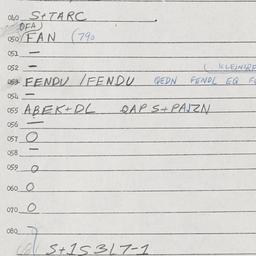 040 S+TARC
OFA)
050 FAN (790
051 —
052 —
053 FENDU / FENDU GEDN FENDL EG
054 —
055 ABEK+DL QAP S+PAJZN
056 —
057 O
058 —
059 O
060 O
070 O
080
S+1S3L7-1